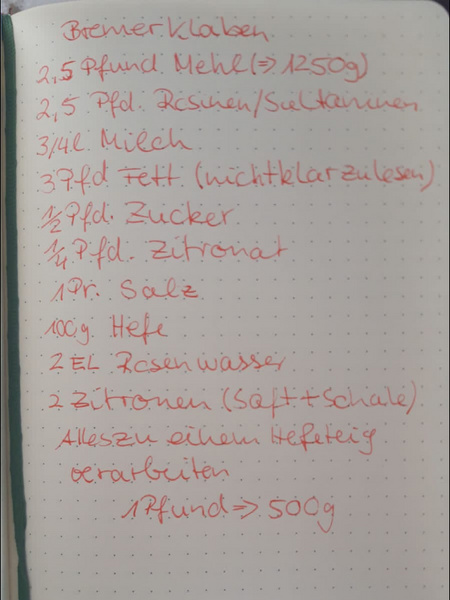 Bremer Klaben
2,5 Pfund Mehl (=> 1250g)
2,5 Pfd. Rosinen/Sultaninen
3/4l Milch
3 Pfd Fett (nicht klar zu lesen)
1/2 Pfd. Zucker
1/4 Pfd. Zitronat
1 Pr. Salz
100g Hefe
2 EL Rosenwasser
2 Zitronen (Saft + Schale)
Alles zu einem Hefeteig
verarbeiten
1 Pfund => 500g